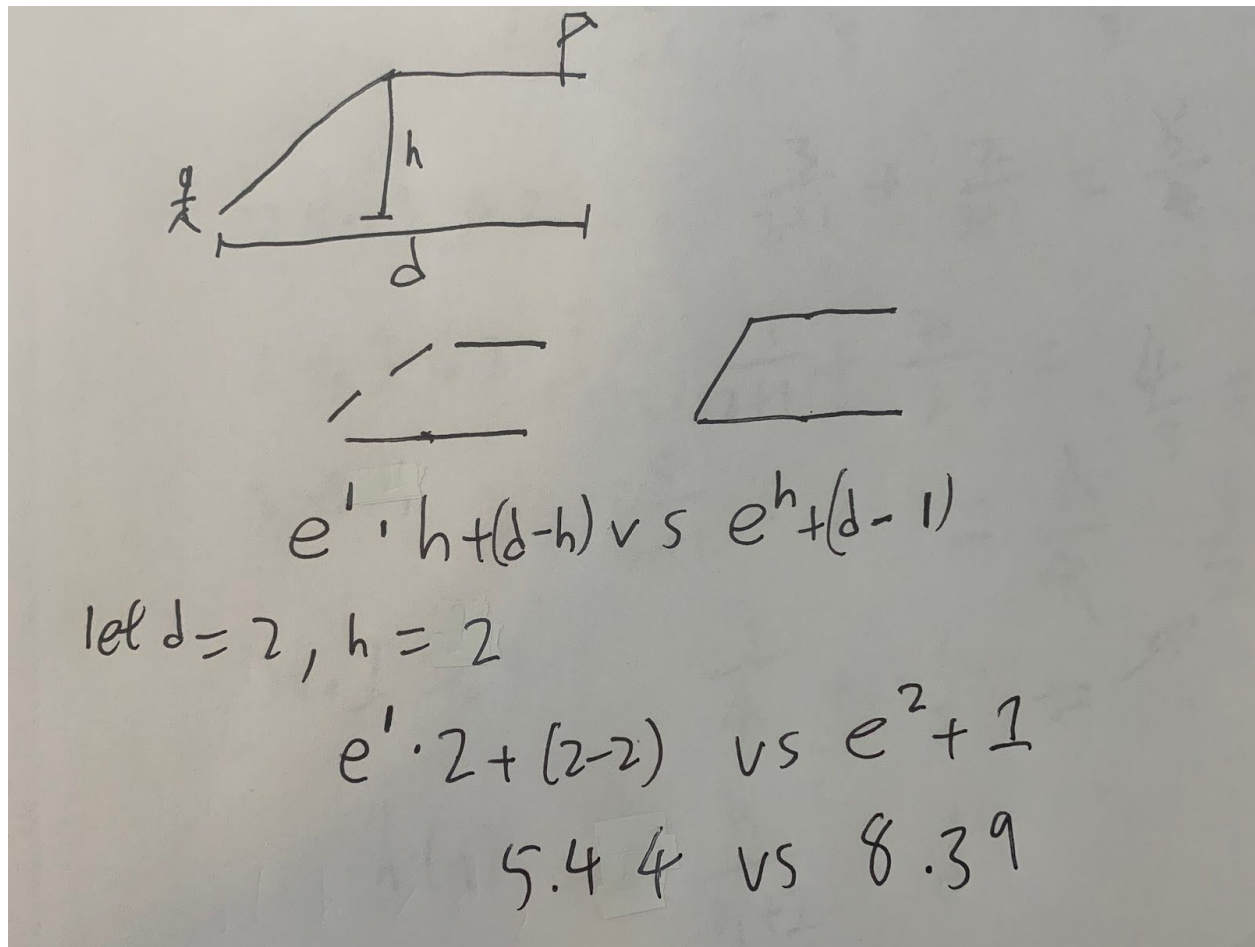 h
d
e¹ · h+(d-h) vs eʰ+(d-1)
let d=2, h = 2
e¹·2+(2-2) vs e²+1
5.44 vs 8.39